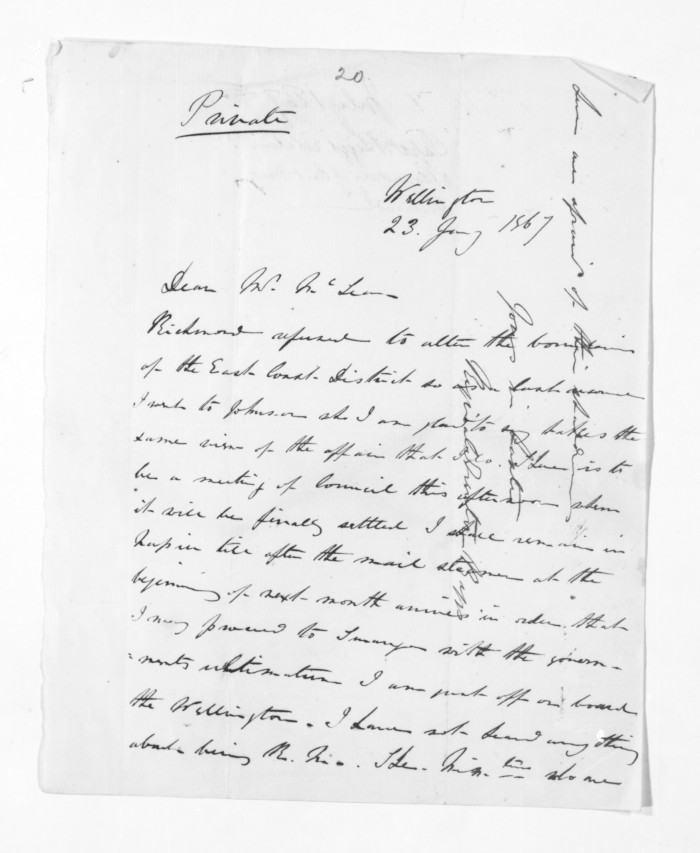 20.
Private
Wellington
23. Jany 1867
Dear Mr. McLean
Richmond refused to alter the boundaries
of the East Coast District so as a last resource
I went to Johnson who I am glad to say takes the
same view of the affair that I do. There is to
be a meeting of Council this afternoon when
it will be finally settled I shall remain in
Napier till after the mail steamer at the
beginning of next month arrives in order that
I may proceed to with the govern-
=ments ultimatum I am just off on board
the Wellington. I have not heard anything
about being R. M. The who are
I am afraid of their
Yours in haste
Reginald Newton Biggs